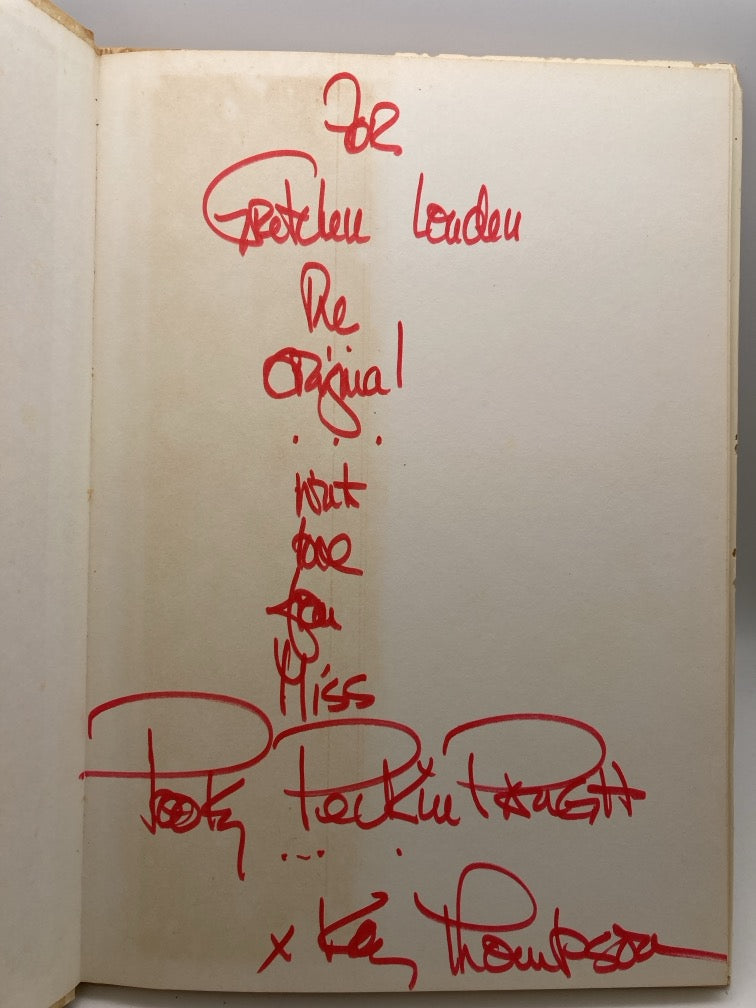 For
Gretchen Louden
The
Original
. . .
Wont
love
you
Miss
Pooky PeckinPaugh
... .
x Kay Thompson